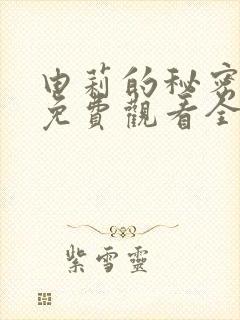 由莉的秘密
免費觀看全
紫雪靈